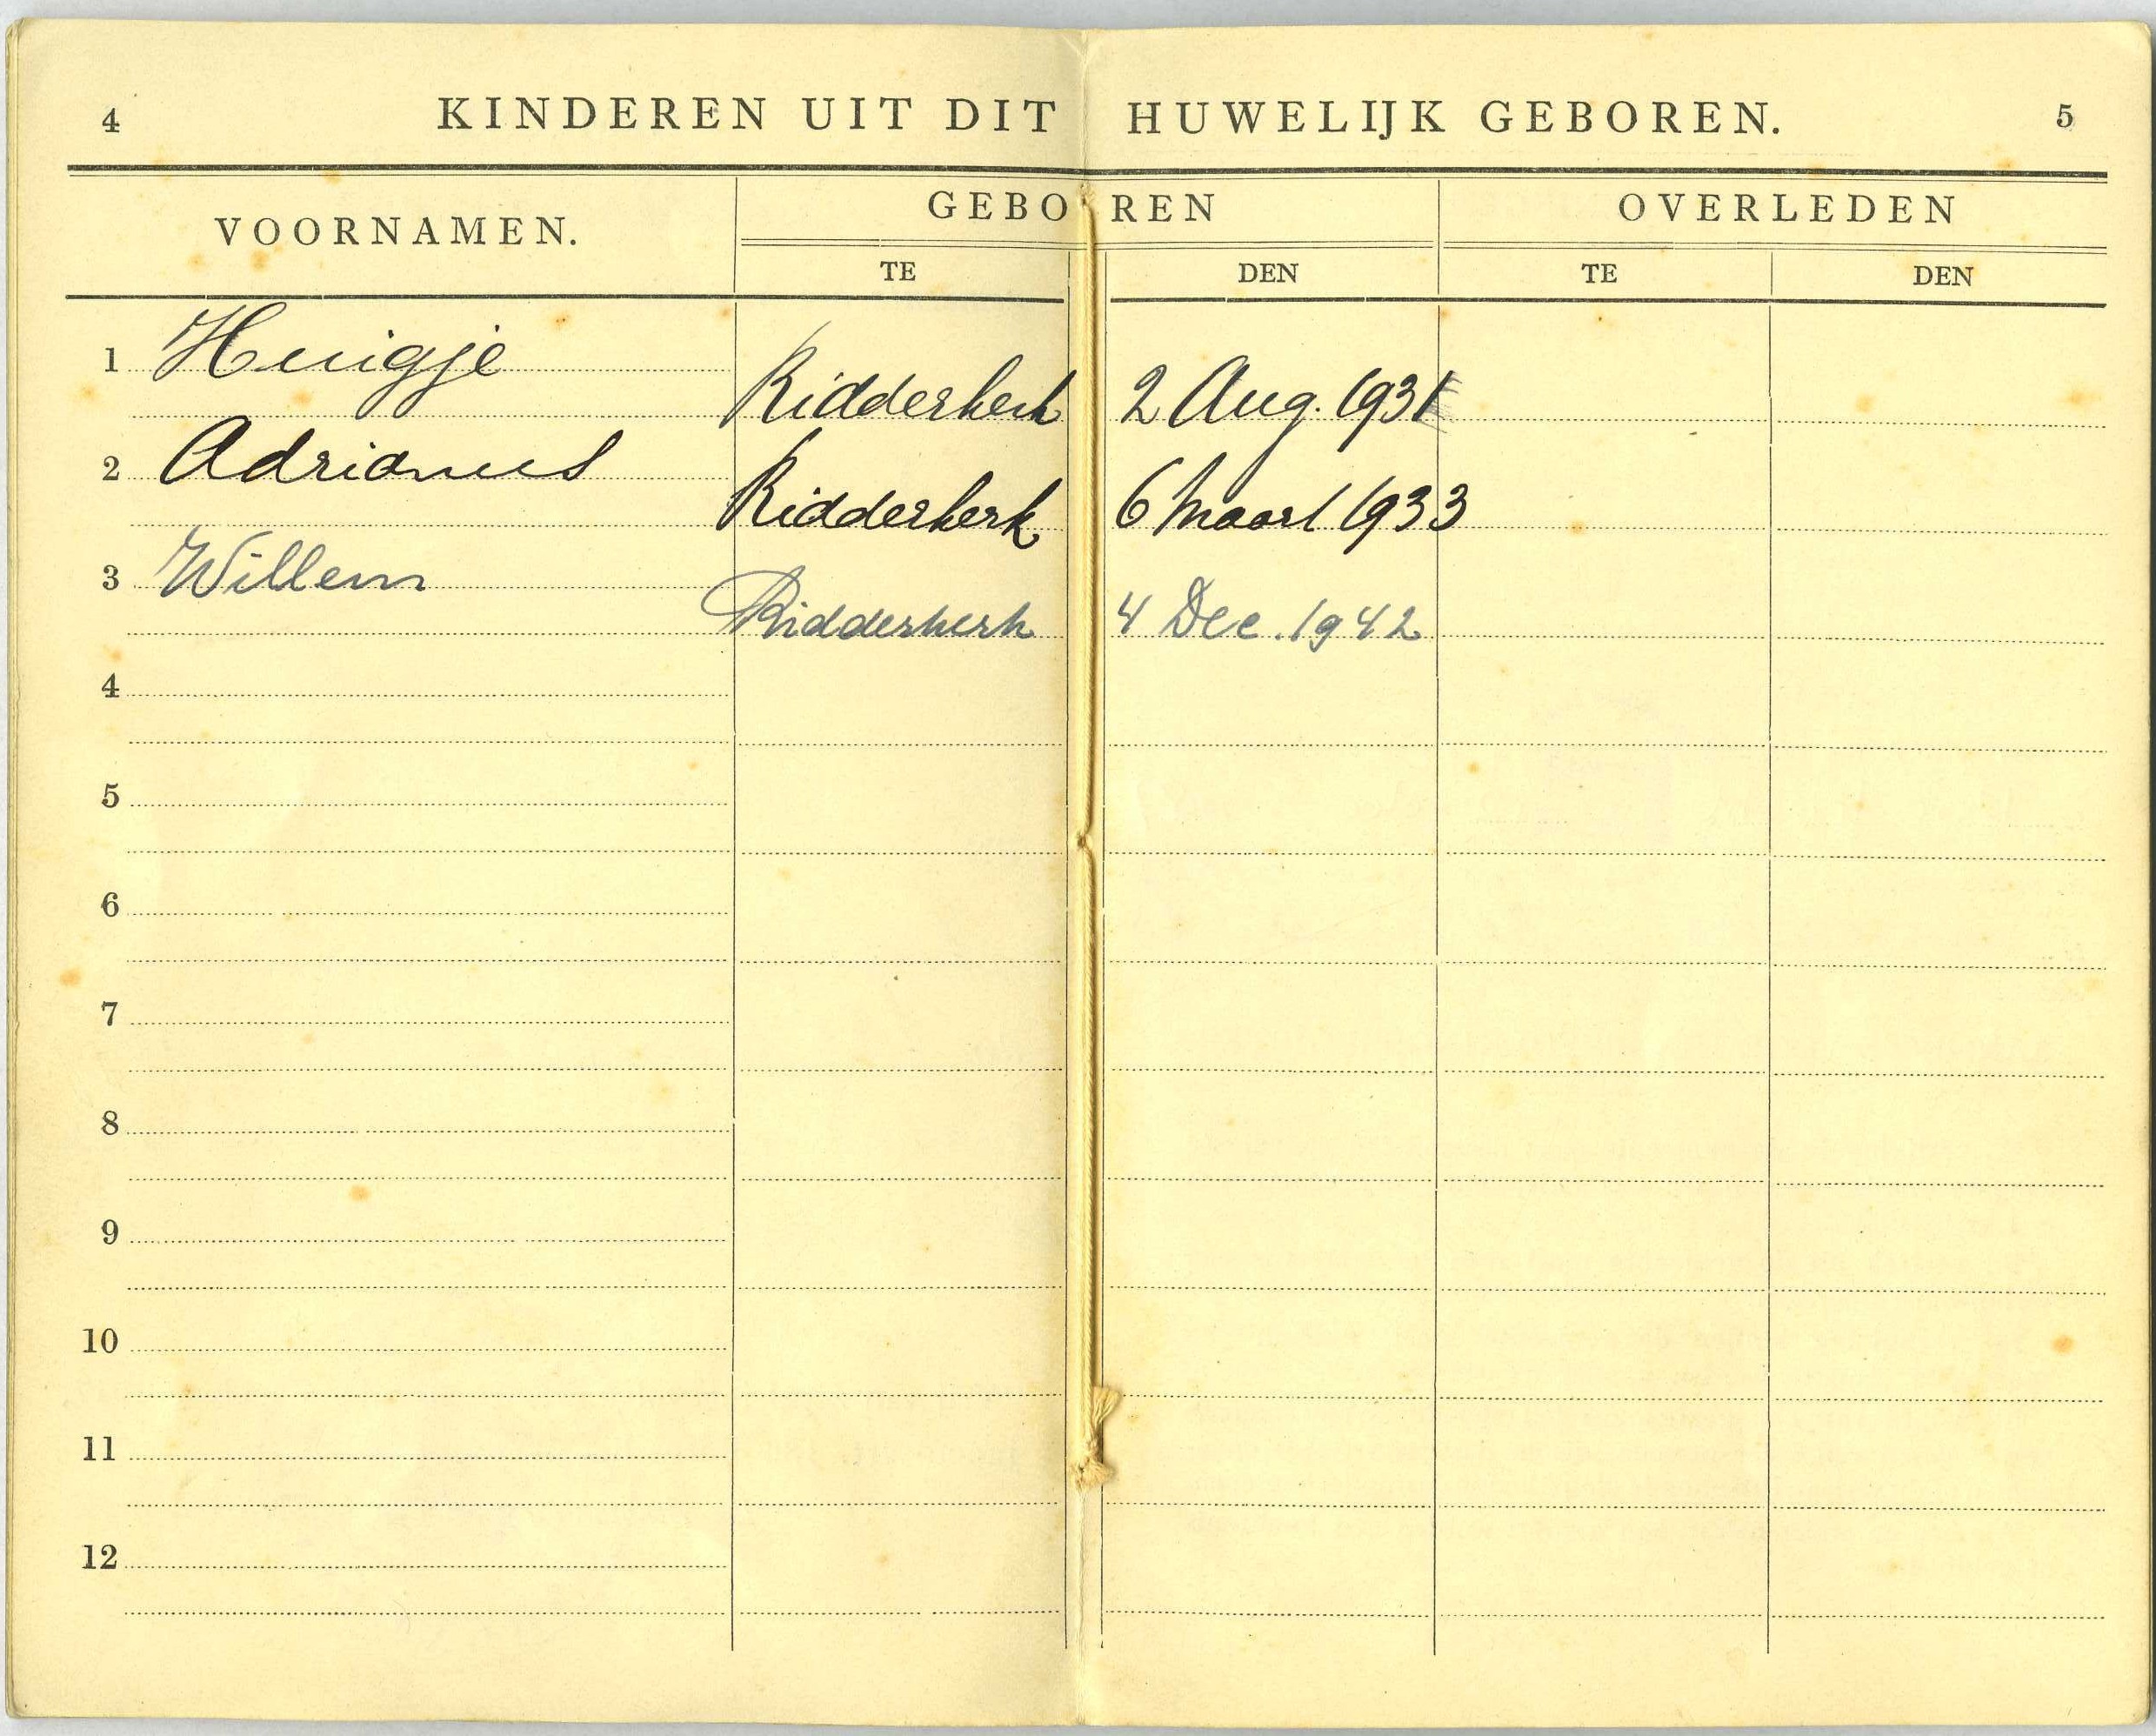 4 KINDEREN UIT DIT HUWELIJK GEBOREN. 5
VOORNAMEN. GEBOREN OVERLEDEN
TE DEN TE DEN
1 Huigje
Ridderkerk 2 Aug. 1931
2 Adrianus
Ridderkerk 6 Maart 1933
3 Willem
Ridderkerk 4 Dec. 1942
4
5
6
7
8
9
10
11
12